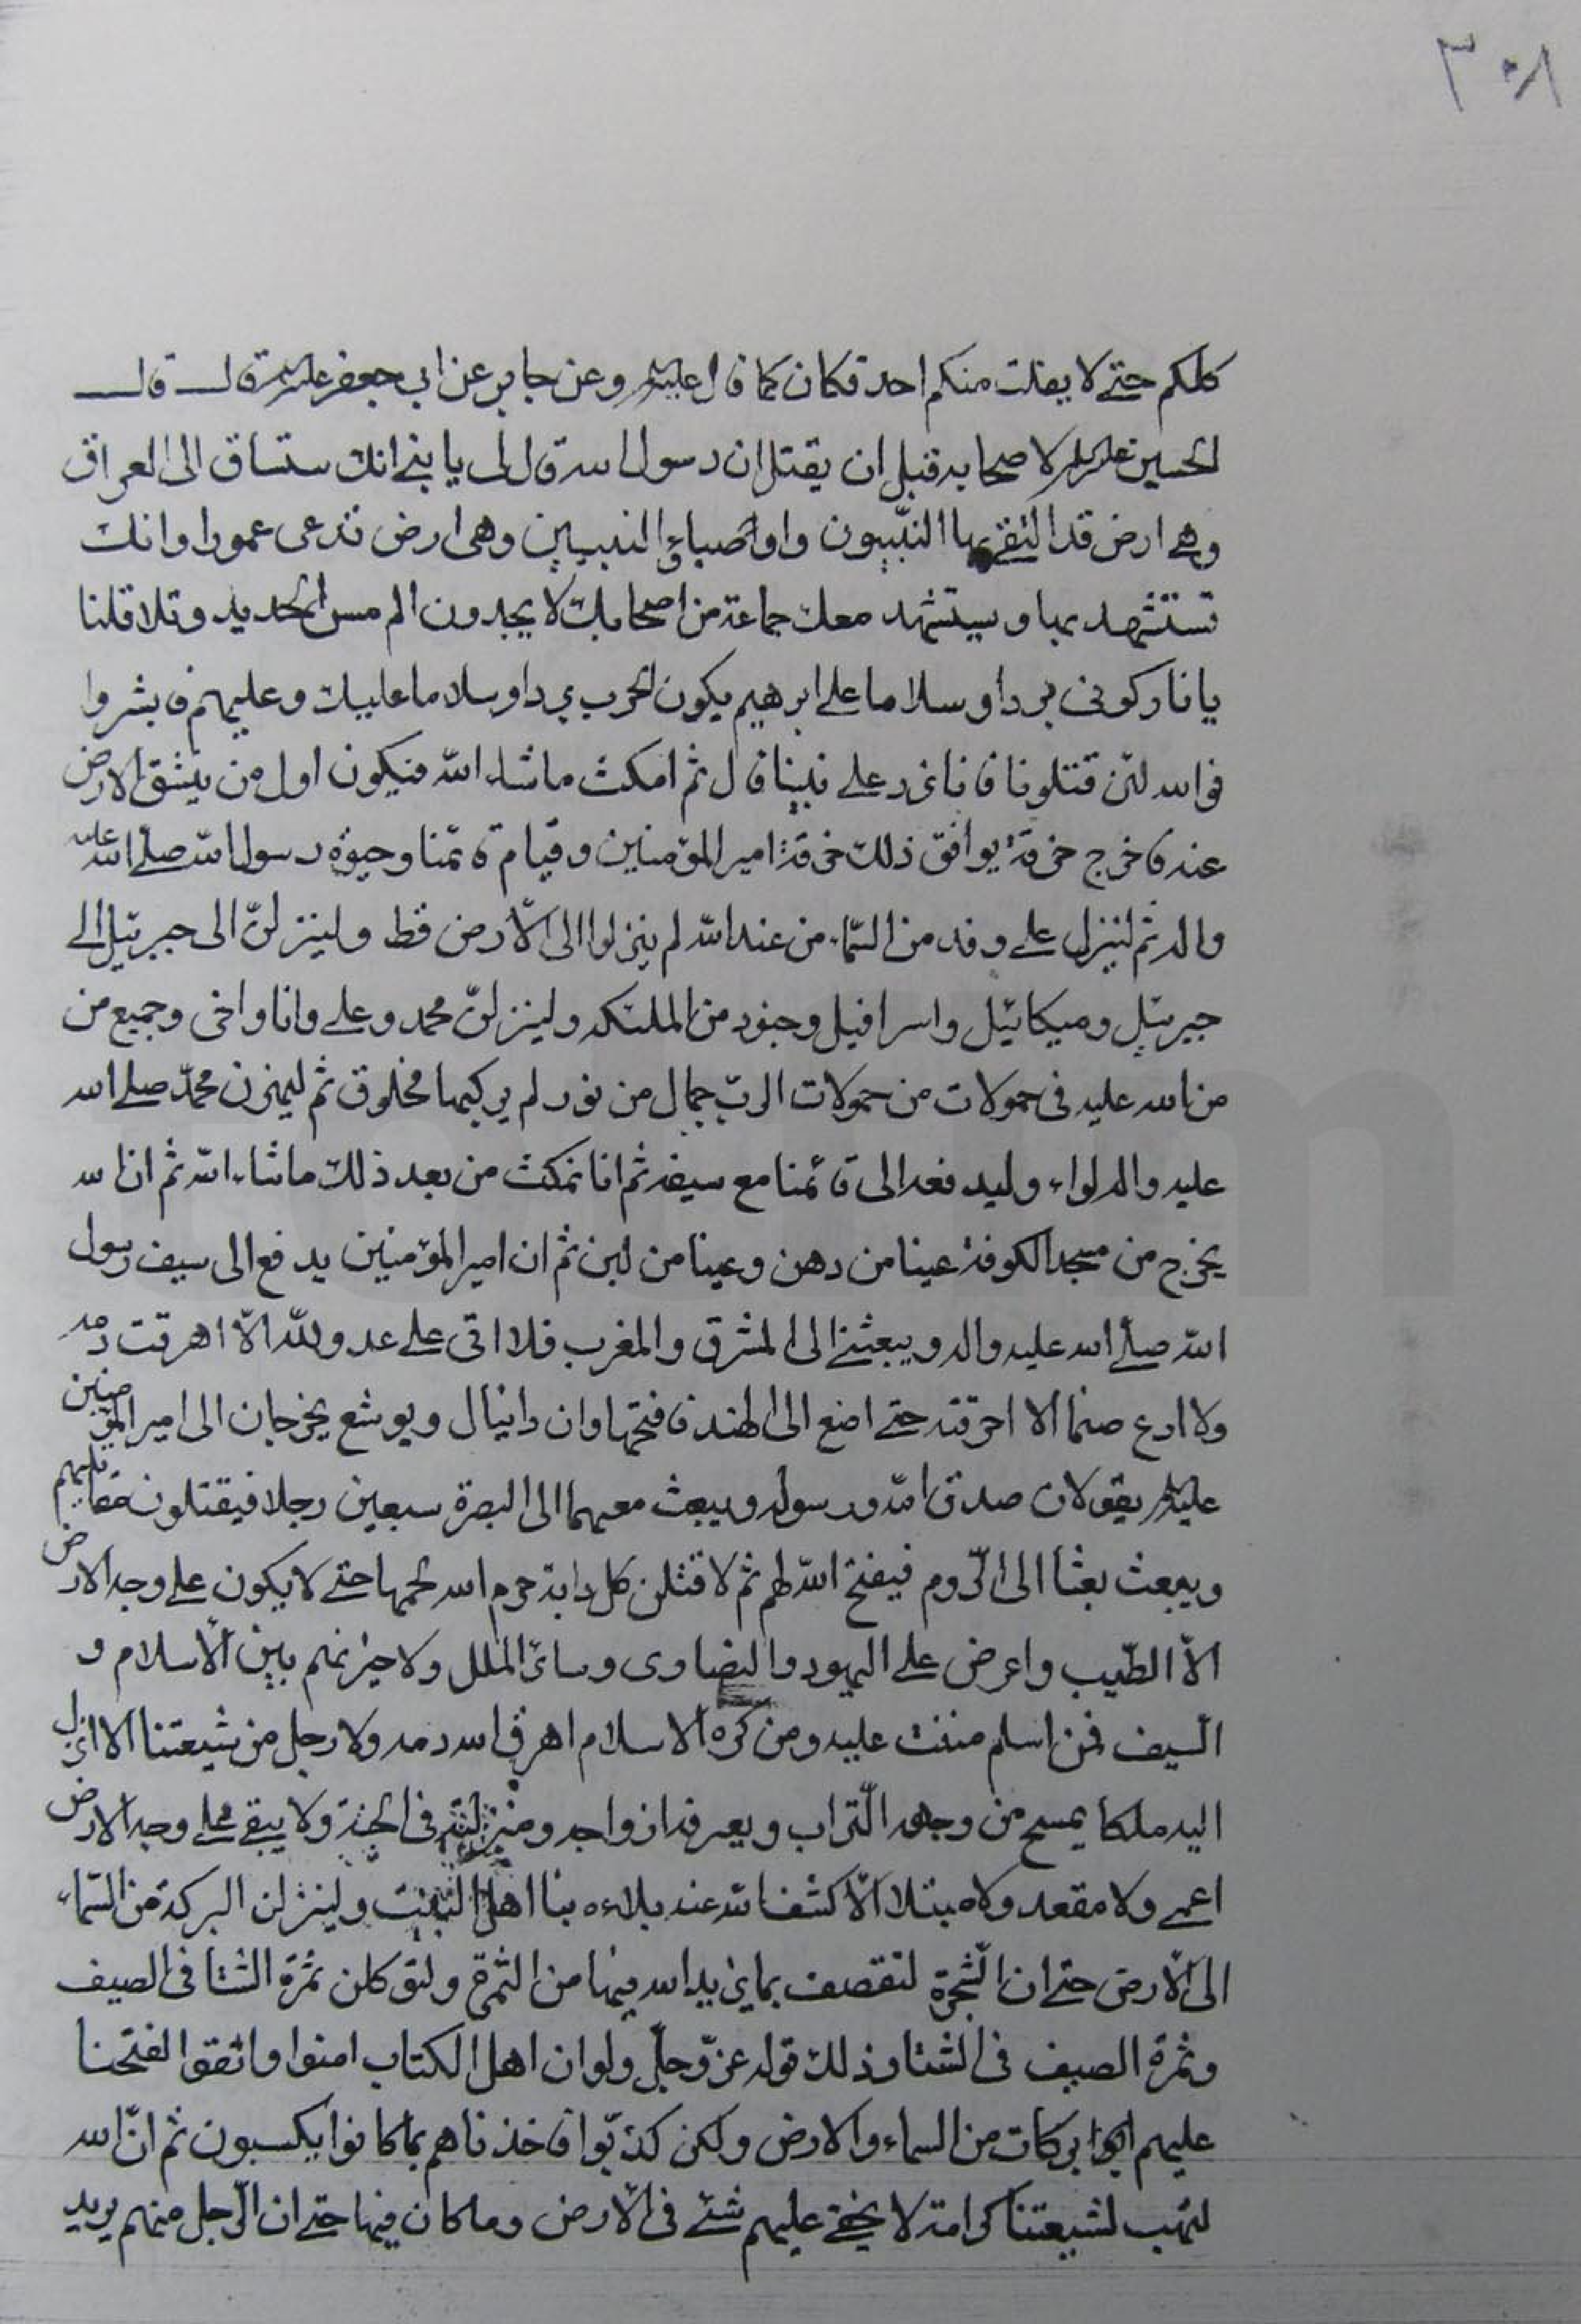 ٣٠٨
كلكم حتى لا يفلت منكم احد فكان كما قال عليه السلام وعن جابر عن ابي جعفر عليه السلام قال قال
الحسين عليه السلام لاصحابه قبل ان يقتل ان رسول الله قال لى يا بنى انك ستساق الى العراق
وهى ارض قد التقى بها النبّيون واوصياء النبيين وهى ارض تدعى عمورا وانك
تستشهد بها ويستشهد معك جماعة من اصحابك لا يجدون الم مس الحديد وتلا قلنا
يا نار كونى بردا وسلاما على ابرهيم يكون الحرب بردا وسلاما عليك وعليهم فابشروا
فوالله لئن قتلونا فانا نرد على نبينا قال ثم امكث ماشاء الله فيكون اول من ينشق الارض
عنه فاخرج خرقة يوافق ذلك خرقة امير المؤمنين وقيام قائمنا وحيوة رسول الله صلى الله عليه
واله ثم لينزل على وفد من السّماء من عند الله لم ينزلوا الى الأرض قط ولينزلنّ الى جبرئيل الى
جبرئيل وميكائيل واسرافيل وجنود من الملئكه ولينزلنّ محمد وعلى وانا واخى وجميع من
من الله عليه فى حمولات من حمولات الربّ جمال من نور لم يركبها مخلوق ثم ليهزن محمّد صلى الله
عليه واله لواءه وليدفعه الى قائمنا مع سيفه ثم انا نمكث من بعد ذلك ماشاء الله ثم ان الله
يخرج من مسجد الكوفة عينا من دهن وعينا من لبن ثم ان امير المؤمنين يدفع الى سيف رسول
الله صلى الله عليه واله ويبعثنى الى المشرق والمغرب فلا اتى على عدو لله الّا اهرقت دمه
ولا ادع صنما الا احرقته حتى اضع الى الهند فافتحها وان دانيال ويوشع يخرجان الى امير المؤمنين
عليه السلام يقولان صدق الله ورسوله ويبعث معهما الى البصرة سبعين رجلا فيقتلون مقاتليهم
ويبعث بعثا الى الرّوم فيفتح الله لهم ثم لاقتلن كل دابة حرم الله لحمها حتى لا يكون على وجه الارض
الّا الطّيب واعرض على اليهود والنصاوى وسائر الملل ولاخيرنهم بين الأسلام و
السّيف فمن اسلم مننت عليه ومن كره الاسلام اهرق الله دمه ولا رجل من شيعتنا الا انزل
اليه ملكا يمسح من وجهه التّراب ويعرفه ازواجه ومنزلته فى الجنة ولا يبقى على وجه الارض
اعمى ولا مقعد ولا مبتلا الّا كشف الله عنه بلاءه بنا اهل البيت ولينزلن البركة من السّماء
الى الأرض حتى ان الشّجرة لتقصف بما يزيد الله فيها من الثمرة ولتوكلن ثمرة الشتا فى الصيف
وثمرة الصيف فى الشتا وذلك قوله عزّ وجلّ ولو ان اهل الكتاب امنوا واتقوا لفتحنا
عليهم بركات من السماء والارض ولكن كذّبوا فاخذناهم بما كانوا يكسبون ثم انّ الله
ليهب لشيعتنا كرامة لا يخفى عليهم شئ فى الأرض وما كان فيها حتى ان الرّجل منهم يريد